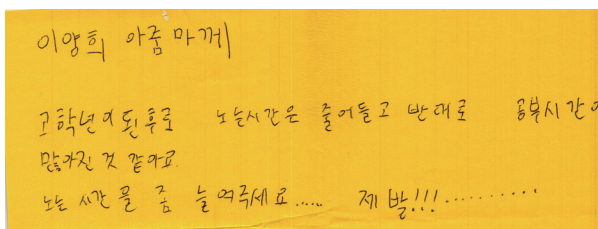 이양희 아줌마께
고학년이 된 후로 노는시간은 줄어들고 반대로 공부시간이
많아진 것 같아요.
노는 시간 을 좀 늘여주세요...... 제발!!!..........